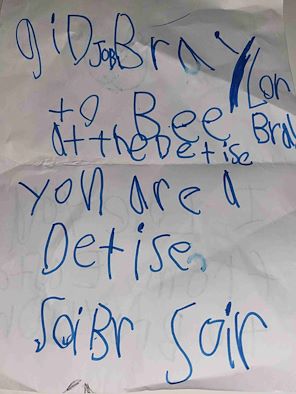 giD JOB Bray Lon
to Bee Bra
at the Detise
you are a
Detise.
SaiBr Soir